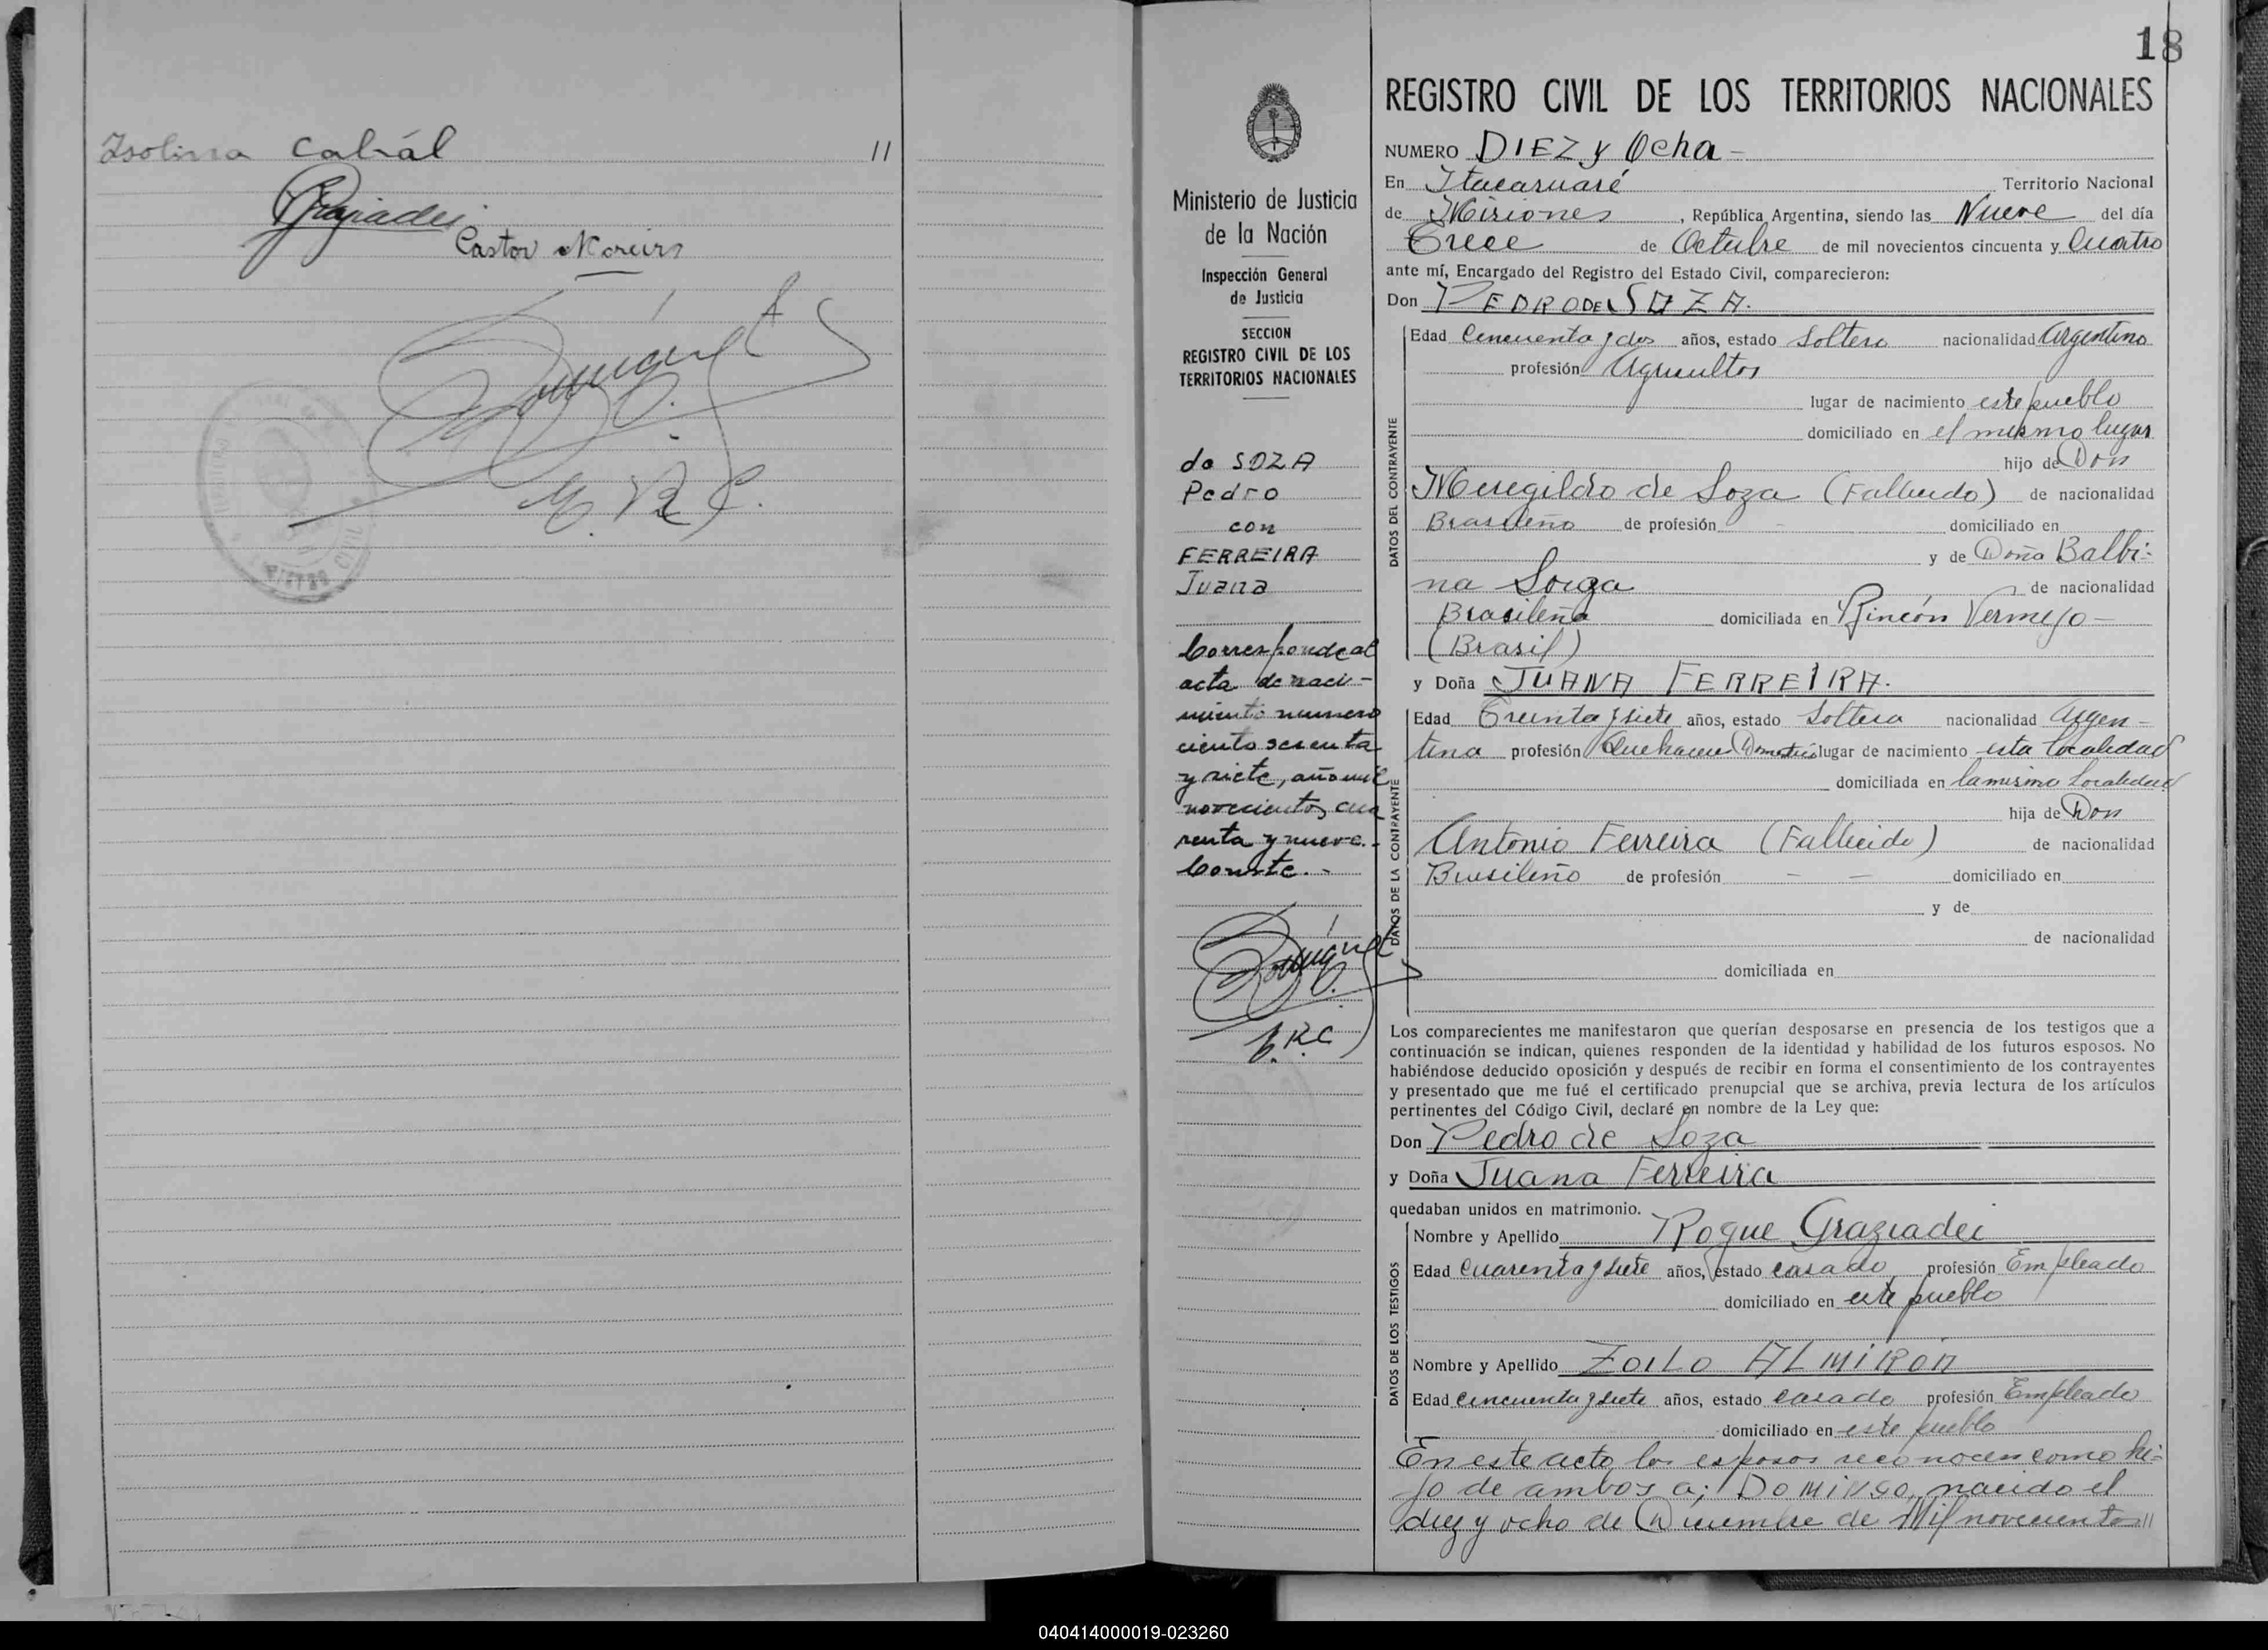 Isolina Cabrál
11
Graziadei
Castor Moreira
E. R. C.
18
Ministerio de Justicia
de la Nación
Inspección General
de Justicia
SECCION
REGISTRO CIVIL DE LOS
TERRITORIOS NACIONALES
de SOZA
Pedro
con
FERREIRA
Juana
Corresponde al
acta de naci-
miento numero
ciento sesenta
y siete, año mil
novecientos cua
renta y nueve.-
Conste.-
E.R.C.
REGISTRO CIVIL DE LOS TERRITORIOS NACIONALES
NUMERO DIEZ y Ocho -
En Itacaruaré Territorio Nacional
de Misiones, República Argentina, siendo las Nueve del día
Trece de Octubre de mil novecientos cincuenta y Cuatro
ante mí, Encargado del Registro del Estado Civil, comparecieron:
Don PEDRO DE SOZA.
DATOS DEL CONTRAYENTE
Edad Cincuenta y dos años, estado Soltero nacionalidad Argentino
profesión Agricultor
lugar de nacimiento este pueblo
domiciliado en el mismo lugar
hijo de Don
Meregildo de Soza (Fallecido) de nacionalidad
Brasileño de profesión - domiciliado en
y de Doña Balbi-
na Soiza de nacionalidad
Brasileña domiciliada en Rincón Vermejo -
(Brasil)
y Doña JUANA FERREIRA.
DATOS DE LA CONTRAYENTE
Edad Treinta y siete años, estado Soltera nacionalidad Argen-
tina profesión Quehaceres Domestic lugar de nacimiento esta localidad
domiciliada en la misma Localidad
hija de Don
Antonio Ferreira (Fallecido) de nacionalidad
Brasileño de profesión - - domiciliado en
y de
de nacionalidad
domiciliada en
Los comparecientes me manifestaron que querían desposarse en presencia de los testigos que a
continuación se indican, quienes responden de la identidad y habilidad de los futuros esposos. No
habiéndose deducido oposición y después de recibir en forma el consentimiento de los contrayentes
y presentado que me fué el certificado prenupcial que se archiva, previa lectura de los artículos
pertinentes del Código Civil, declaré en nombre de la Ley que:
Don Pedro de Soza
y Doña Juana Ferreira
quedaban unidos en matrimonio.
DATOS DE LOS TESTIGOS
Nombre y Apellido Roque Graziadei
Edad Cuarenta y siete años, estado casado profesión Empleado
domiciliado en este pueblo
Nombre y Apellido ZOILO ALMIRON
Edad cincuenta y siete años, estado casado profesión Empleado
domiciliado en este pueblo
En este acto los esposos reconocen como hi-
jo de ambos a; DOMINGO, nacido el
diez y ocho de Diciembre de Mil novecientos //
040414000019-023260